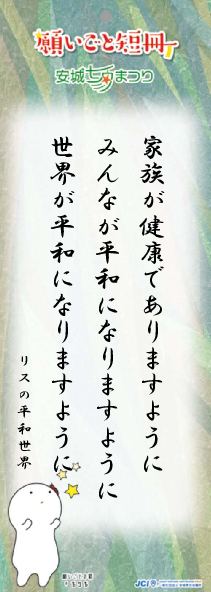 願いごと短冊
安城七夕まつり
家族が健康でありますように
みんなが平和になりますように
世界が平和になりますように
リスの平和世界
JCI